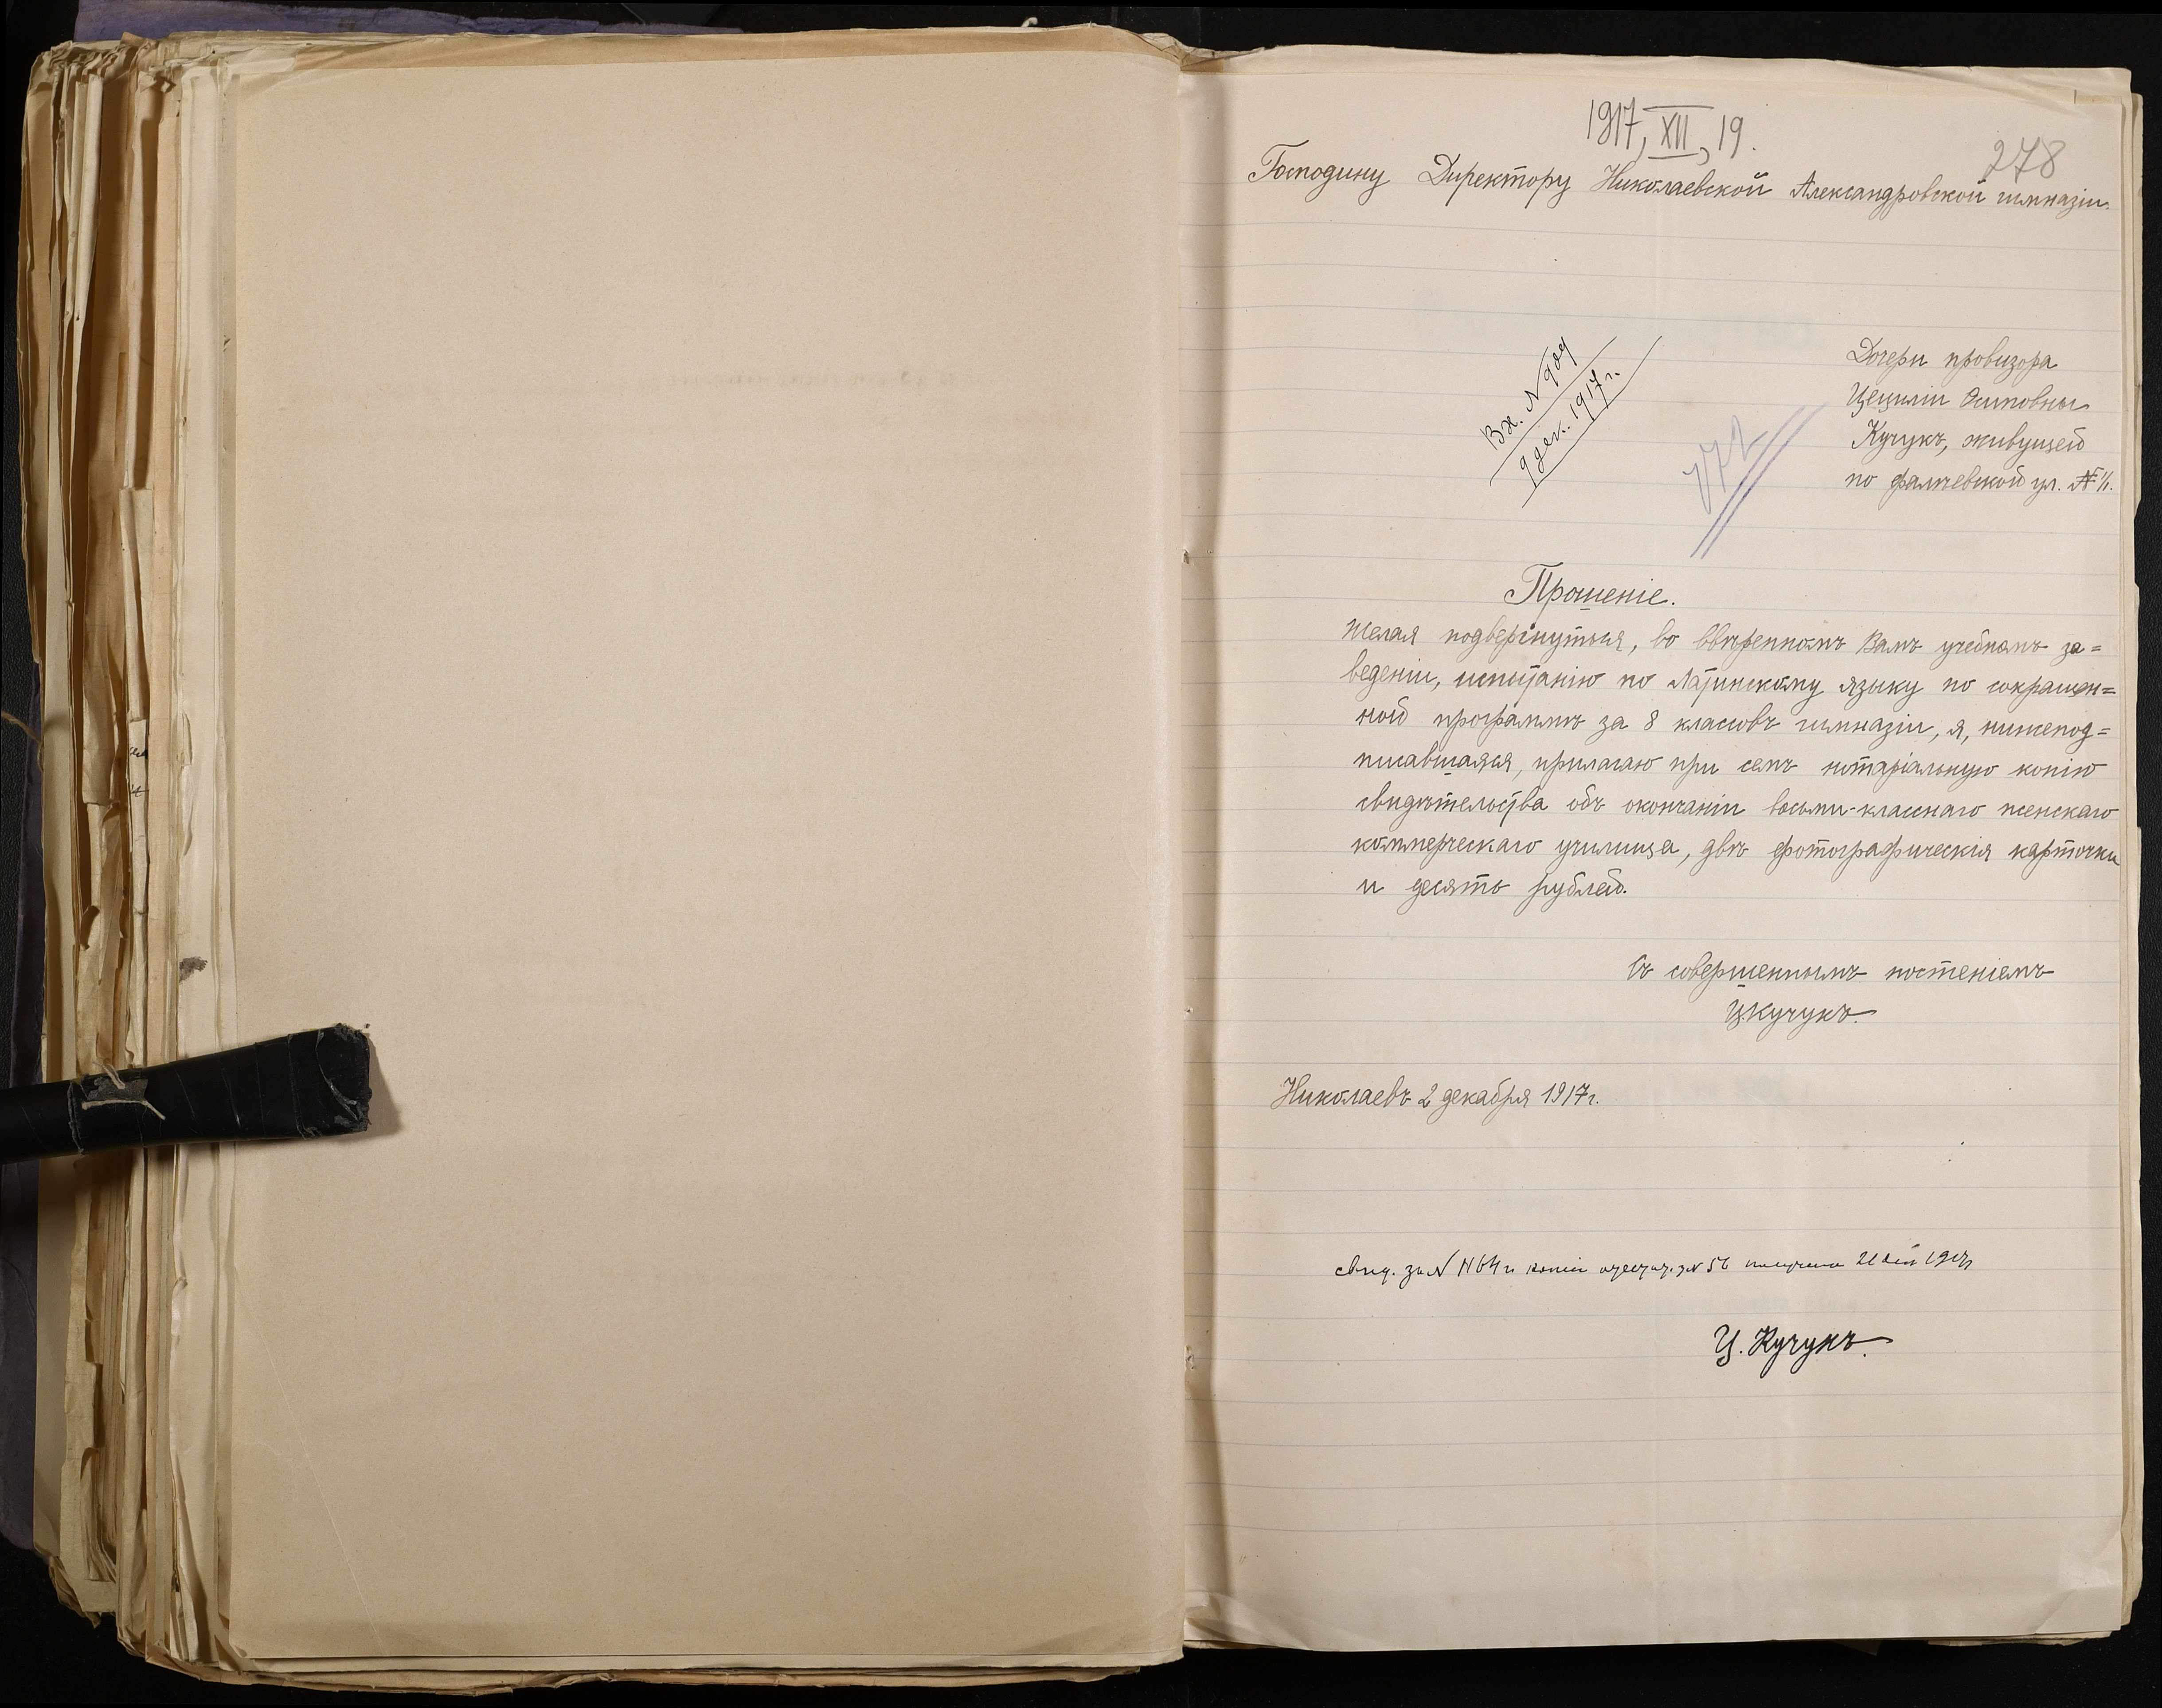 1917, XII, 19.
278
Господину Директору Николаевской Александровской гимназіи.
Вх. № 909
9 дек. 1917 г.
172
Дочери провизора
Цециліи Осиповны
Кучукъ, живущей
по фалѣевской ул. №
Прошеніе.
Желая подвергнуться, во ввѣренномъ Вамъ учебномъ за=
веденіи, испытанію по латинскому языку по сокращен=
ной программѣ за 8 классовъ гимназіи, я, нижепод=
писавшаяся, прилагаю при семъ нотаріальную копію
свидѣтельства объ окончаніи восьми-класснаго женскаго
коммерческаго училища, двѣ фотографическія карточки
и десять рублей.
Съ совершеннымъ почтеніемъ
Ц.Кучукъ.
Николаевъ 2 декабря 1917 г.
свид. за № 1164 и копіи за № 56 получила
Ц. Кучукъ.